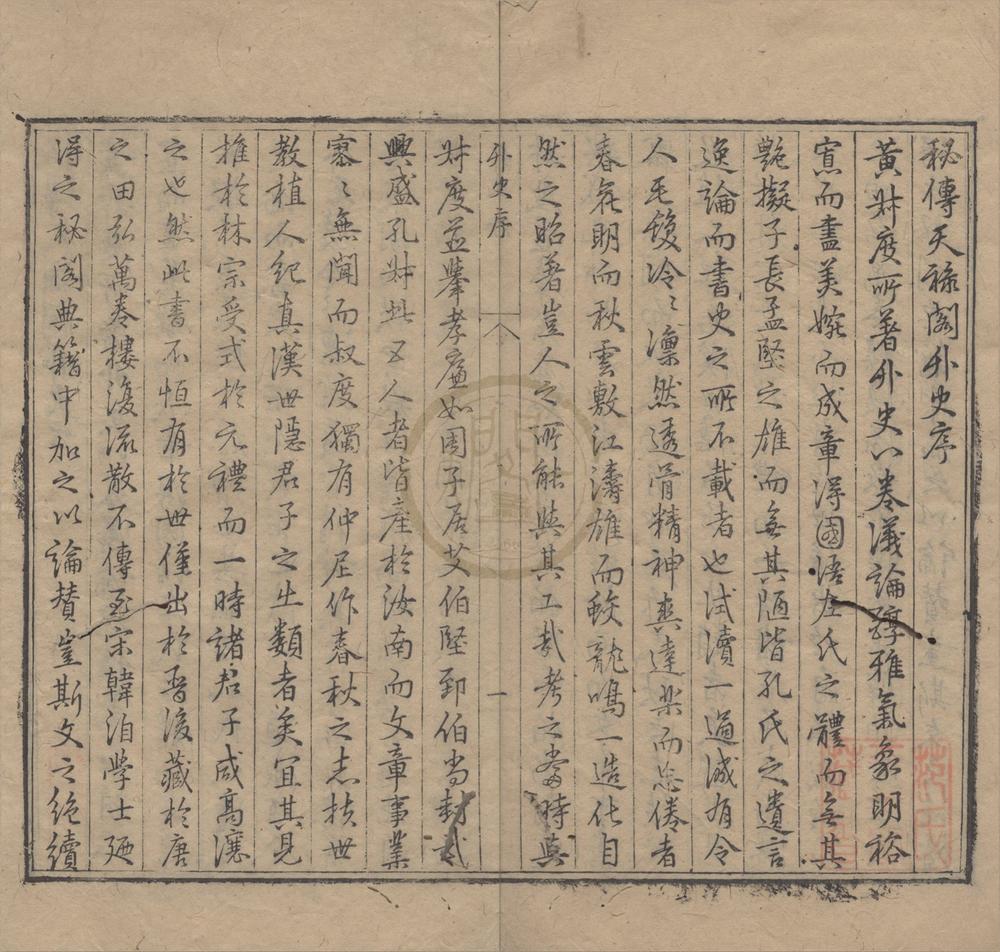 秘傳天祿閣外史序
黃叔度所著外史八卷議論醇雅氣象明裕
寘而盡美婉而成章得國語左氏之體而無其
艷擬子長孟堅之雄而無其陋皆孔氏之遺言
逸論而書史之所不載者也試讀一過誠有令
人毛發冷〻凜然透骨精神爽達樂而忘倦者
春花明而秋雲敷江濤雄而鮫龍鳴一造化自
然之昭著豈人之所能與其工哉考之當時與
外史序
一
叔度並舉孝廉如周子居艾伯堅郅伯尚封武
興盛孔叔此五人者皆產於汝南而文章事業
寥〻無聞而叔度獨有仲尼作春秋之志扶世
教植人紀真漢世隱君子之出類者矣宜其見
推於林宗受式於元禮而一時諸君子咸高讓
之也然此書不恒有於世僅出於晉後藏於唐
之田弘萬卷樓復流散不傳至宋韓洎學士廼
得之秘閣典籍中加之以論贊豈斯文之絕續